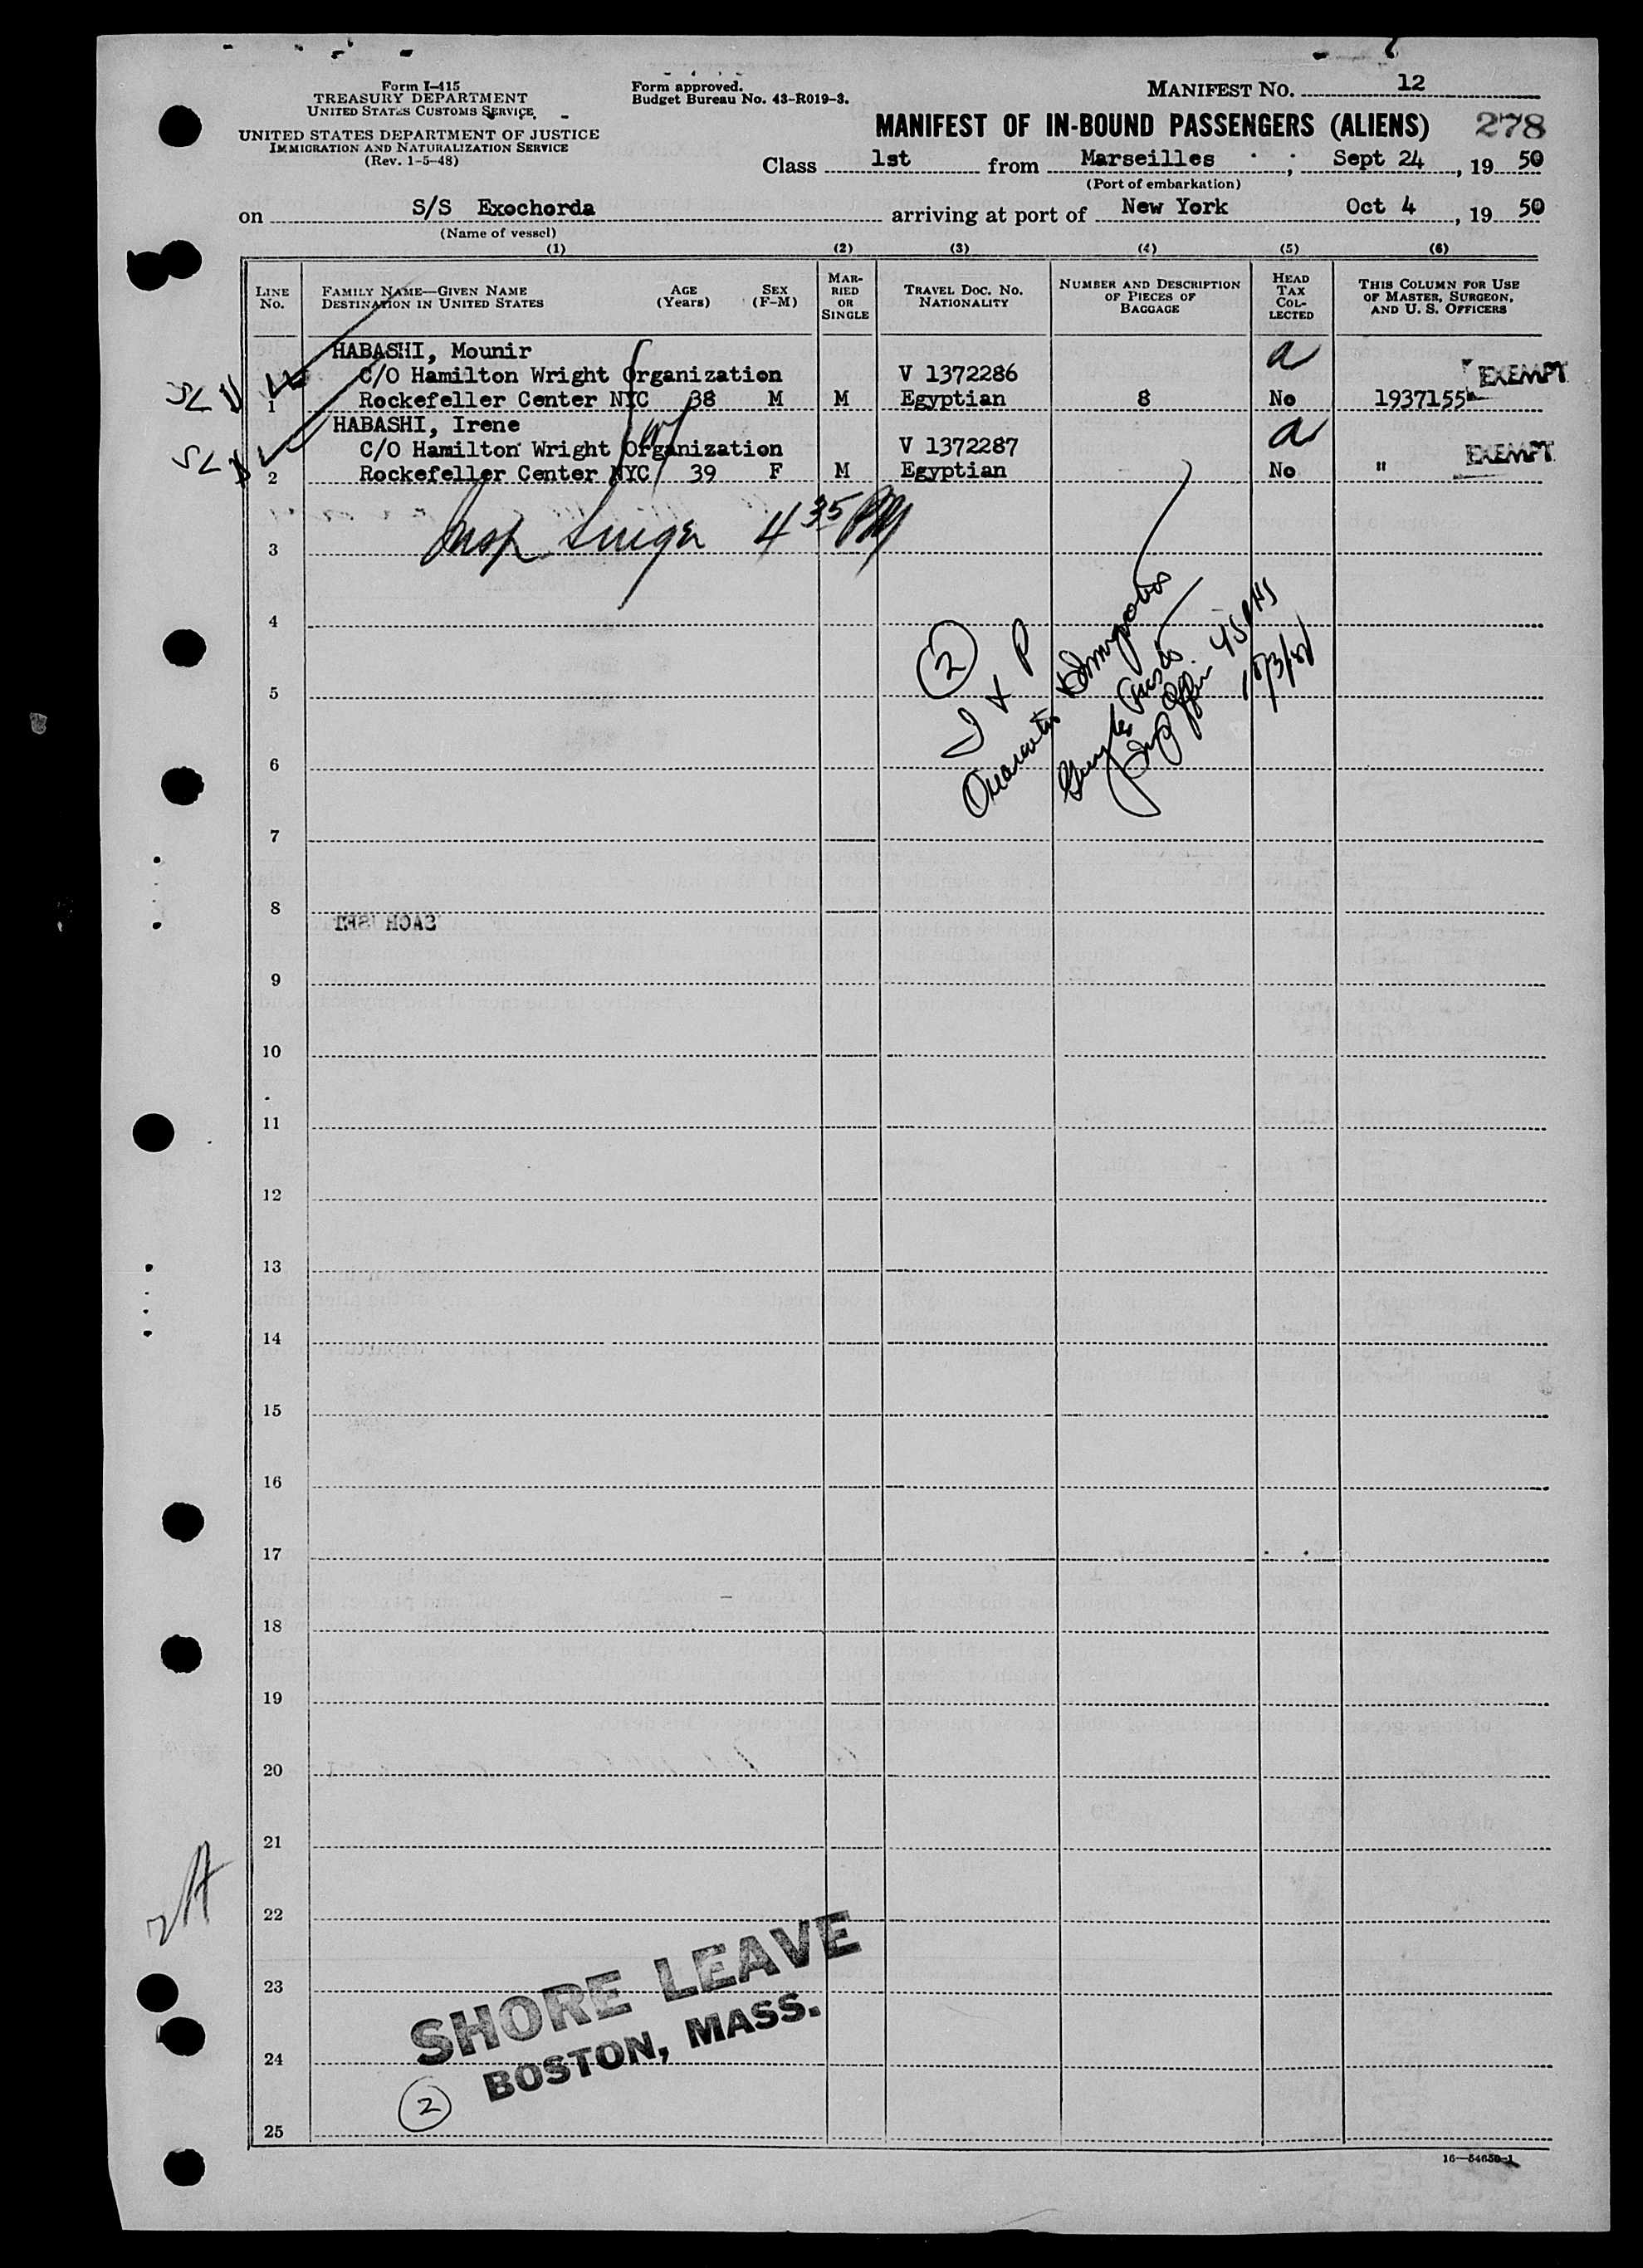 Form I-415
TREASURY DEPARTMENT
UNITED STATES CUSTOMS SERVICE
UNITED STATES DEPARTMENT OF JUSTICE
IMMIGRATION AND NATURALIZATION SERVICE
(Rev. 1-5-48)
Form approved.
Budget Bureau No. 43-R019-3.
MANIFEST NO. 12
MANIFEST OF IN-BOUND PASSENGERS (ALIENS) 278
Class 1st from Marseilles, Sept 24, 19 50
(Port of embarkation)
on S/S Exochorda arriving at port of New York Oct 4, 19 50
(Name of vessel)
(1) (2) (3) (4) (5) (6)
LINE NO.
FAMILY NAME—GIVEN NAME
DESTINATION IN UNITED STATES
AGE (Years)
SEX (F-M)
MARRIED OR SINGLE
TRAVEL DOC. NO.
NATIONALITY
NUMBER AND DESCRIPTION OF PIECES OF BAGGAGE
HEAD TAX COLLECTED
THIS COLUMN FOR USE OF MASTER, SURGEON, AND U. S. OFFICERS
HABASHI, Mounir a
C/O Hamilton Wright Organization V 1372286 EXEMPT
1 Rockefeller Center NYC 38 M M Egyptian 8 No 1937155
HABASHI, Irene a
C/O Hamilton Wright Organization V 1372287 EXEMPT
2 Rockefeller Center NYC 39 F M Egyptian No "
Insp Singer 4 35 PM
3
4
2
I & P
5
6
7
8
9
10
11
12
13
14
15
16
17
18
19
20
21
22
23
24
25
SHORE LEAVE
BOSTON, MASS.
2
16—54650-1